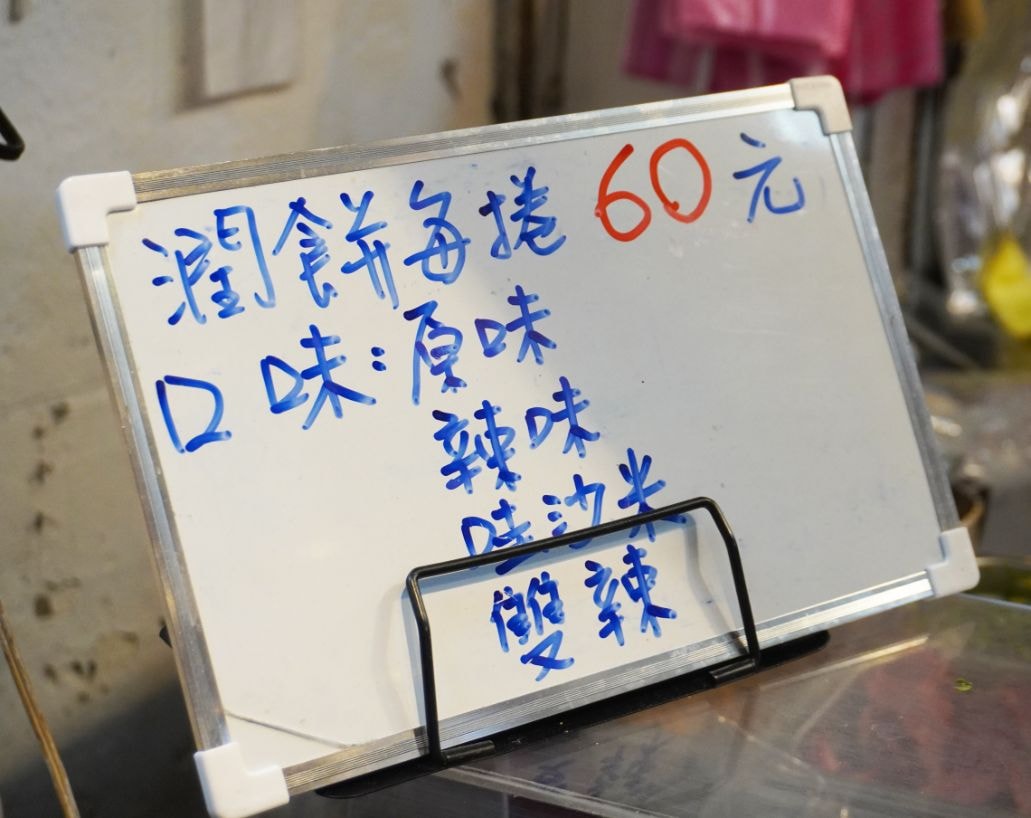 潤餅每捲60元
口味:原味
辣味
哇沙米
雙辣